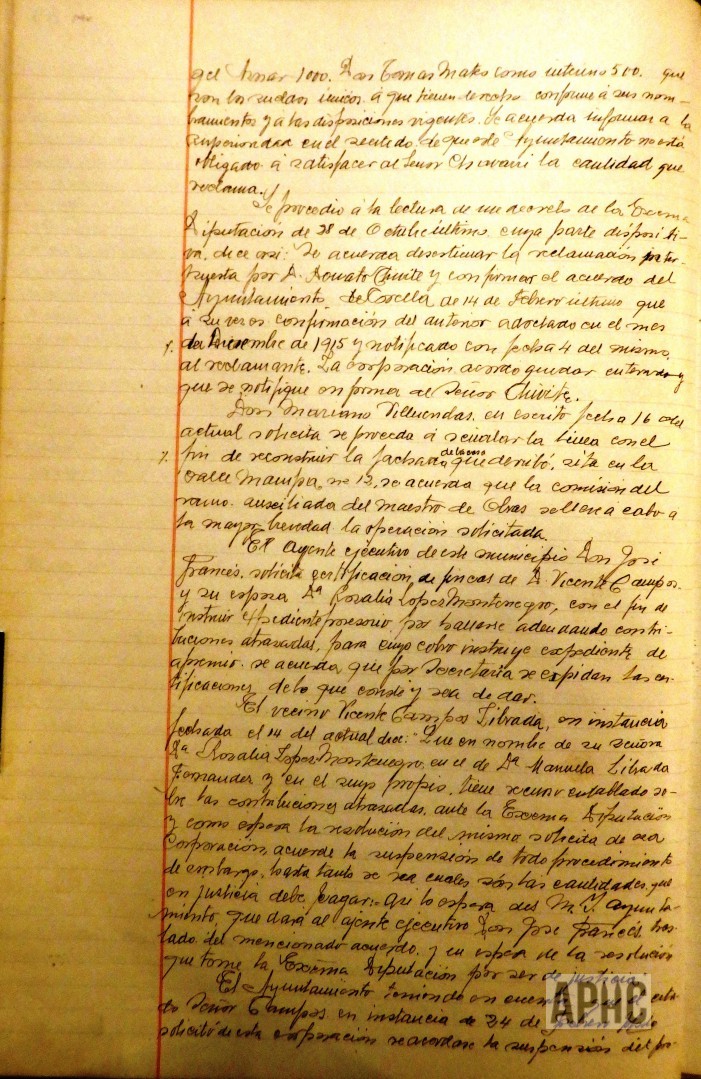 gel Aznar 1000. Don Tomas Mateo como interino 500. que
son los sueldos únicos á que tienen derecho conforme á sus nom-
bramientos y á las disposiciones vigentes. Se acuerda informar a la
superioridad en el sentido de que este Ayuntamiento no está
obligado á satisfacer al Señor Chavarri la cantidad que
reclama.
Se procedió á la lectura de un decreto de la Excma
Diputacion de 28 de Octubre último cuya parte dispositi-
va, dice asi: Se acuerda desestimar la reclamación inter-
puesta por D. Donato Chivite y confirmar el acuerdo del
Ayuntamiento de Corella de 14 de Febrero último que
á su vez es confirmación del anterior adoctado en el mes
de Diciembre de 1915 y notificado con fecha 4 del mismo,
al reclamante. La corporación acordo quedar enterada y
que se notifique en forma al Señor Chivite.
Don Mariano Villuendas, en escrito fecha 16 del
actual solicita se proceda á señalar la linea con el
fin de reconstruir la fachada de la casa que derribó, sita en la
calle Mampa, no 12, se acuerda que la comision del
ramo auxiliada del maestro de Obras se lleve a cabo a
la mayor brevedad la operación solicitada.
El agente ejecutivo de este municipio Don José
Francés, solicita certificación de fincas de D. Vicente Campos
y su esposa Da Rosalia Lopez Montenegro, con el fin de
instruir expediente posesorio por hallarse adeudando contri-
buciones atrasadas, para cuyo cobro instruye expediente de
apremio. se acuerda que por Secretaría se expidan las cer-
tificaciones de lo que conste y sea de dar.
El vecino Vicente Campos Librada, en instancia
fechada el 14 del actual dice: Que en nombre de su señora
Da Rosalia Lopez Montenegro, en el de Da Manuela Librada
Fernandez y en el suyo propio, tiene recurso entablado so-
bre las contribuciones atrasadas, ante la Excma Diputación
y como espera la resolución del mismo solicita de esa
Corporación, acuerde la suspensión de todo procedimiento
de embargo, hasta tanto se sea cuales son las cantidades que
en justicia debe pagar. Que lo espera del M. I. Ayunta-
miento, que dará al agente ejecutivo Don José Francés tras-
lado del mencionado acuerdo, y en espera de la resolución
que tome la Excma Diputación por ser de justicia.
El Ayuntamiento teniendo en cuenta que el cita-
do Señor Campos en instancia de 24 de
solicitó de esta corporación se acordase la suspensión del pro-
APHC